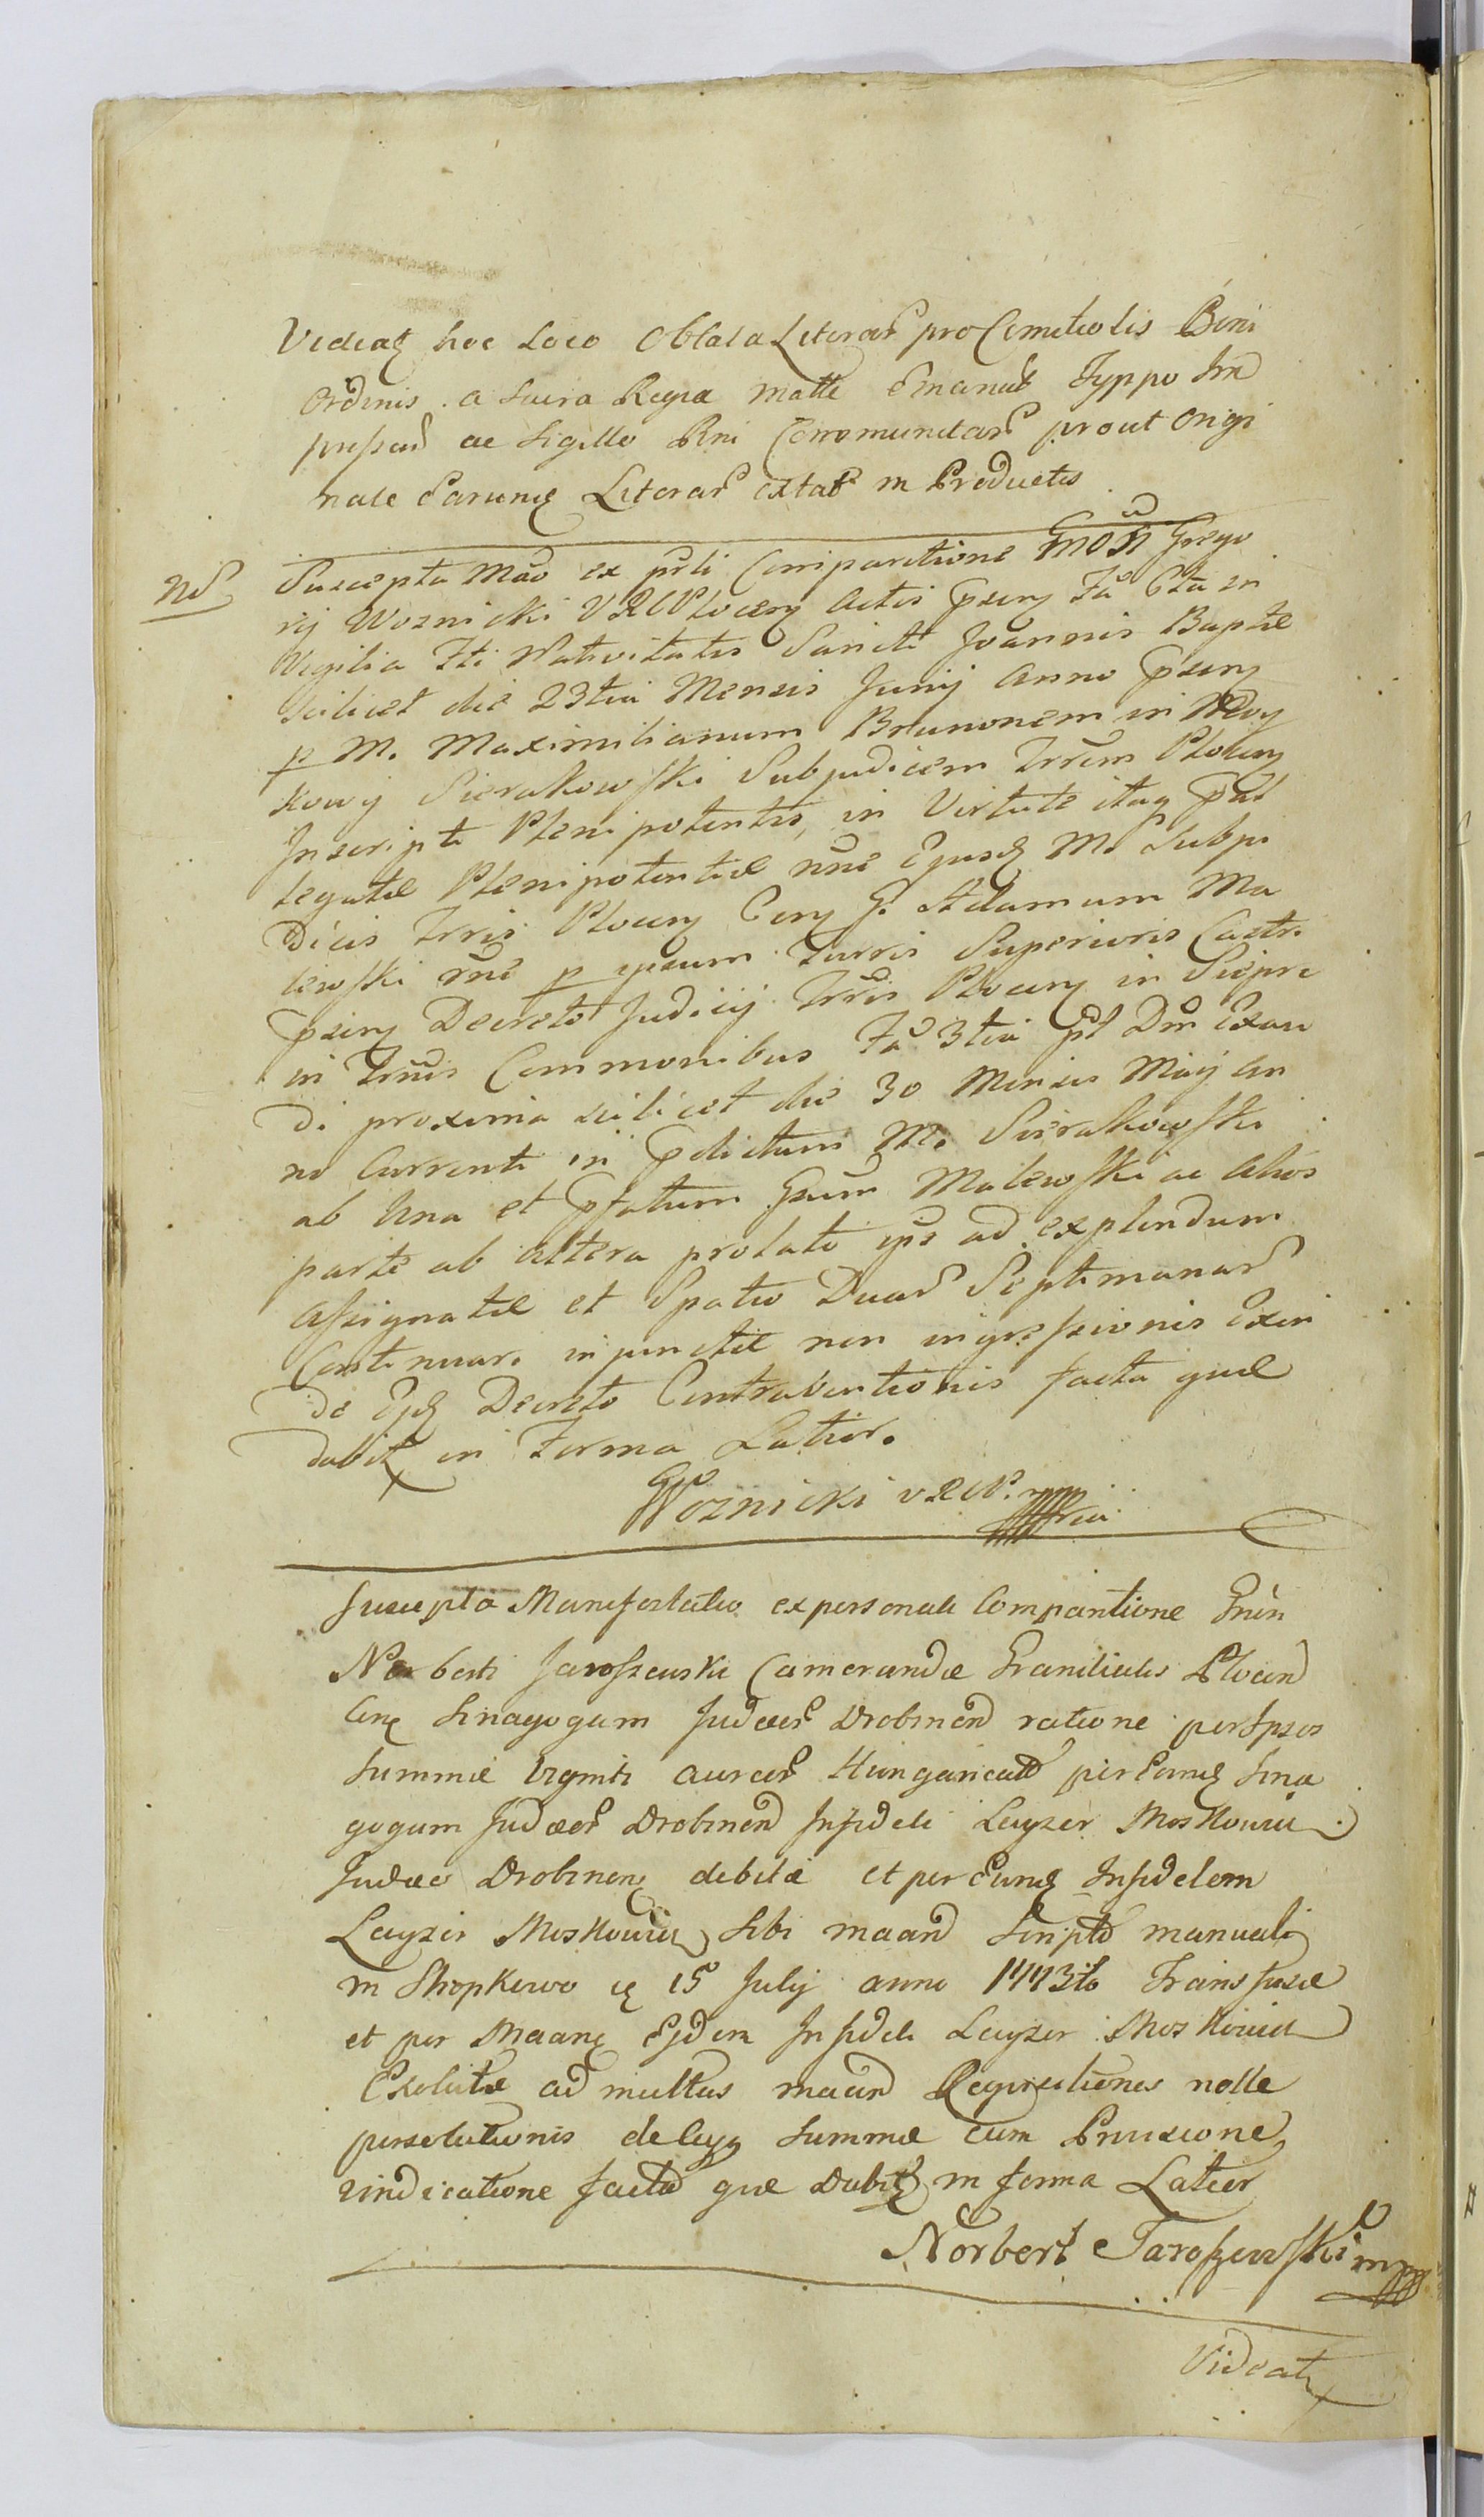 Videatz hoc Loco Oblata Literar pro Comitiolis Bini
Ordinis a Sacra Regia Matte Emanat Typpo Im
pressar ac Sigillo Rni Communitar prout Origi
nale Earunq Literar extat in Productis
Nd Suscepta Mao ex prli Comparitione Gnosi Grego
rij Woznicki VRCPlocen Actis psen Fa 6ta in
Vigilia Fti Nativitatis Sancti Joannis Baptae
scilicet die 23tia Mensis Junij Anno psen
p M. Maximilianum Brunonem in
kowy Sierakowski Subjudicem Trrem Plocen
Inscripti Plenipotentis, in Virtute itaq
legatae Plenipotentiae nne Ejusd M. Subju
dicis Trris Plocen Con G. Adamum Ma
lewski rne p ipsum Turris Superioris Castri
psen Decreto Judicij Trris Plocen in Sierpc
in Trnis Commonibus Fa 3tia pt Dm Exau
di proxima scilicet die 30 Mensis Maij An
no Currenti in pdictum M. Sierakowski
ab Una et pfatum Gsum Malewski ac Alios
parte ab Altera prolato ips ad explendum
Assignatae et Spatio Duar Septimanar
Continuar. injunctae non ingressionis Exin
de Ejd Decreto Contraventionis facta quae
dabitz in Forma Latior.
Woznicki VRCP. mpp
Suscepta Manifestatio ex personali Comparitione Gnin
Norberti Jaroszewski Camerandae Granitialis Plocen
Cnq Sinagogam Judaeor Drobinen ratione per Ipsos
Summae Viginti aureor Hungaricali per Eamq Sina
gogam Judaeor Drobinen Infideli Leyzer Moskowicz
Judaeo Drobinen debitae et per Eunq Infidelem
Leyzer Moskowicz Sibi maand Scripto manuali
in Skopkowo q 15 Julij anno 1773tio Transfusae
et per Maanq Ejdem Infideli Leyzer Moskowicz
Exolutae ad multas maand Requisitiones nolle
persolutionis delcyq Summae cum Provisione
vindicatione facta quae Dabitz in forma Latior
Norbert Jaroszewski mpp
Videatz